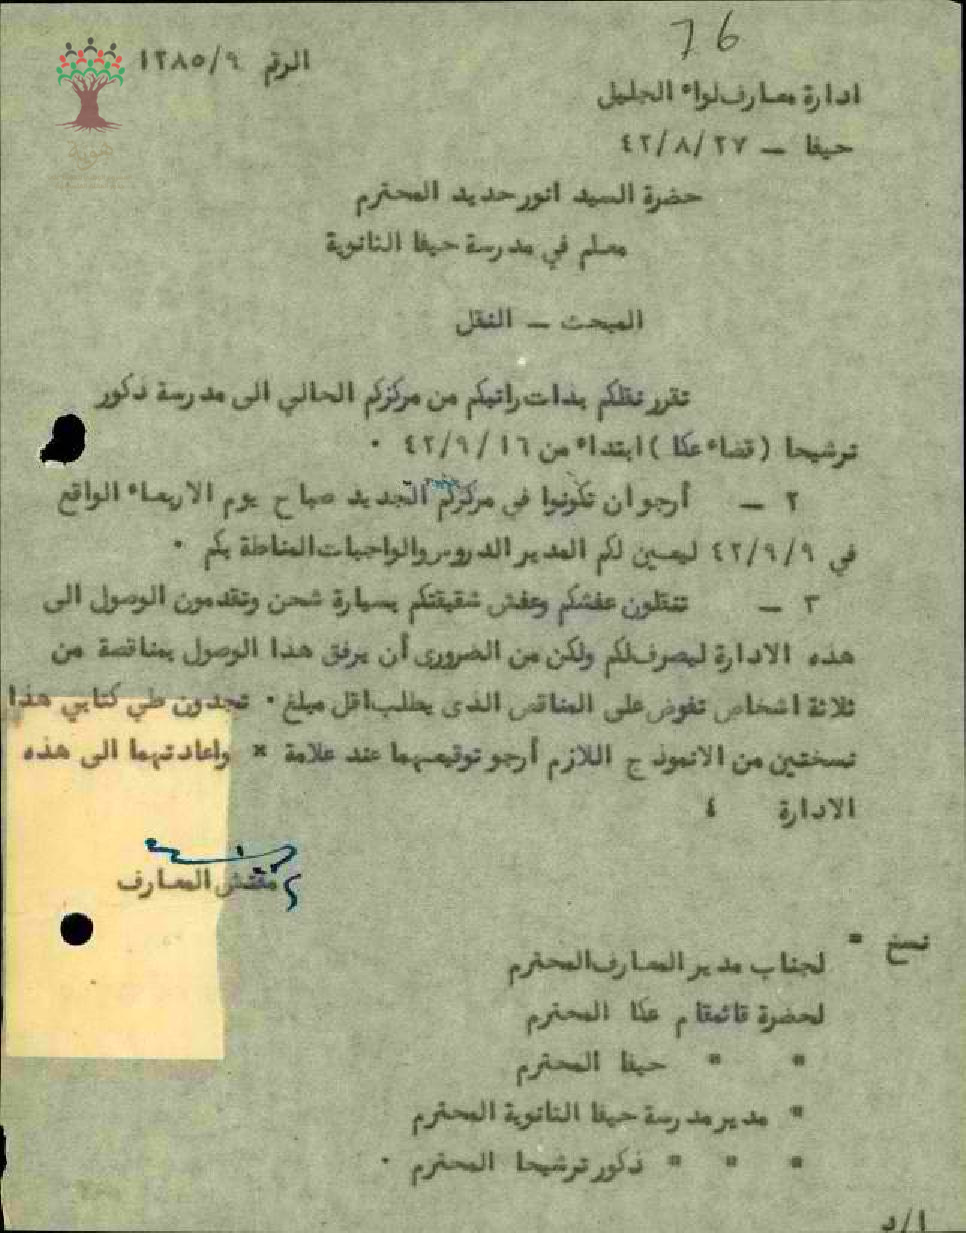 76
الرقم ١٢٨٥/٩
ادارة معارف لواء الجليل
حيفا — ٤٢/٨/٢٧
حضرة السيد انور حديد المحترم
معلم في مدرسة حيفا الثانوية
المبحث — النقل
تقرر نقلكم بذات راتبكم من مركزكم الحالي الى مدرسة ذكور
ترشيحا (قضاء عكا) ابتداء من ٤٢/٩/١٦ ٠
٢ — أرجو ان تكونوا في مركزكم الجديد صباح يوم الاربعاء الواقع
في ٤٢/٩/٩ ليعين لكم المدير الدروس والواجبات المناطة بكم ٠
٣ — تنقلون عفشكم وعفش شقيقتكم بسيارة شحن وتقدمون الوصول الى
هذه الادارة ليصرف لكم ولكن من الضروري أن يرفق هذا الوصول بمناقصة من
ثلاثة اشخاص تفوض على المناقص الذي يطلب اقل مبلغ ٠ تجدون طي كتابي هذا
نسختين من الانموذج اللازم أرجو توقيعهما عند علامة × واعادتهما الى هذه
الادارة ٤
مفتش المعارف
نسخ "
لجناب مدير المعارف المحترم
لحضرة قائمقام عكا المحترم
" " حيفا المحترم
" مدير مدرسة حيفا الثانوية المحترم
" " " ذكور ترشيحا المحترم ٠
ا/د
هوية